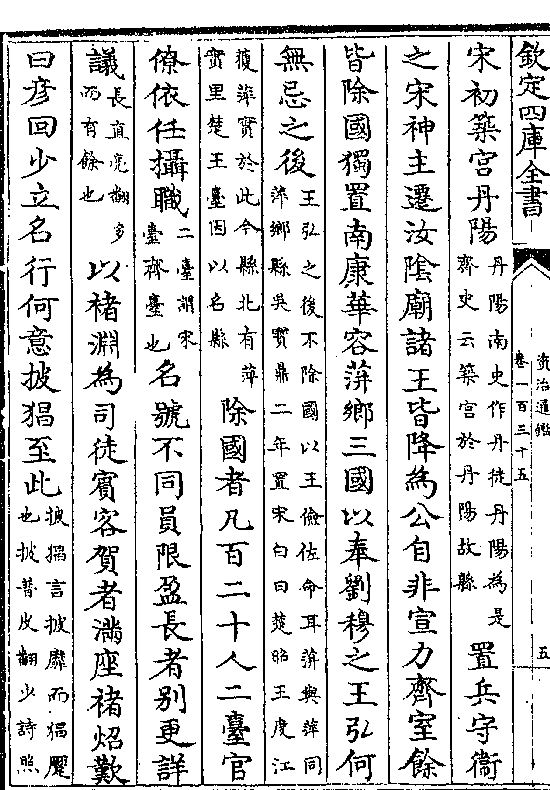 欽定四庫全書
資治通鑑
卷一百三十五
五
宋初築宮丹陽丹陽南史作丹徒丹陽為是齊史云築宮於丹陽故縣置兵守衞
之宋神主遷汝隂廟諸王皆降為公自非宣力齊室餘
皆除國獨置南康華容蓱鄉三國以奉劉穆之王弘何
無忌之後王弘之後不除國以王儉佐命耳蓱與萍同蓱鄉縣吳寳鼎二年置宋白曰楚昭王度江
獲萍實於此今縣北有萍實里楚王臺因以名縣除國者凡百二十人二臺官
僚依任攝職二臺謂宋臺齊臺也名號不同員限盈長者别更詳
議長直亮翻多而有餘也以褚淵為司徒賓客賀者滿座褚炤歎
曰彦回少立名行何意披猖至此披猖言披靡而猖蹷也披普皮翻少詩照